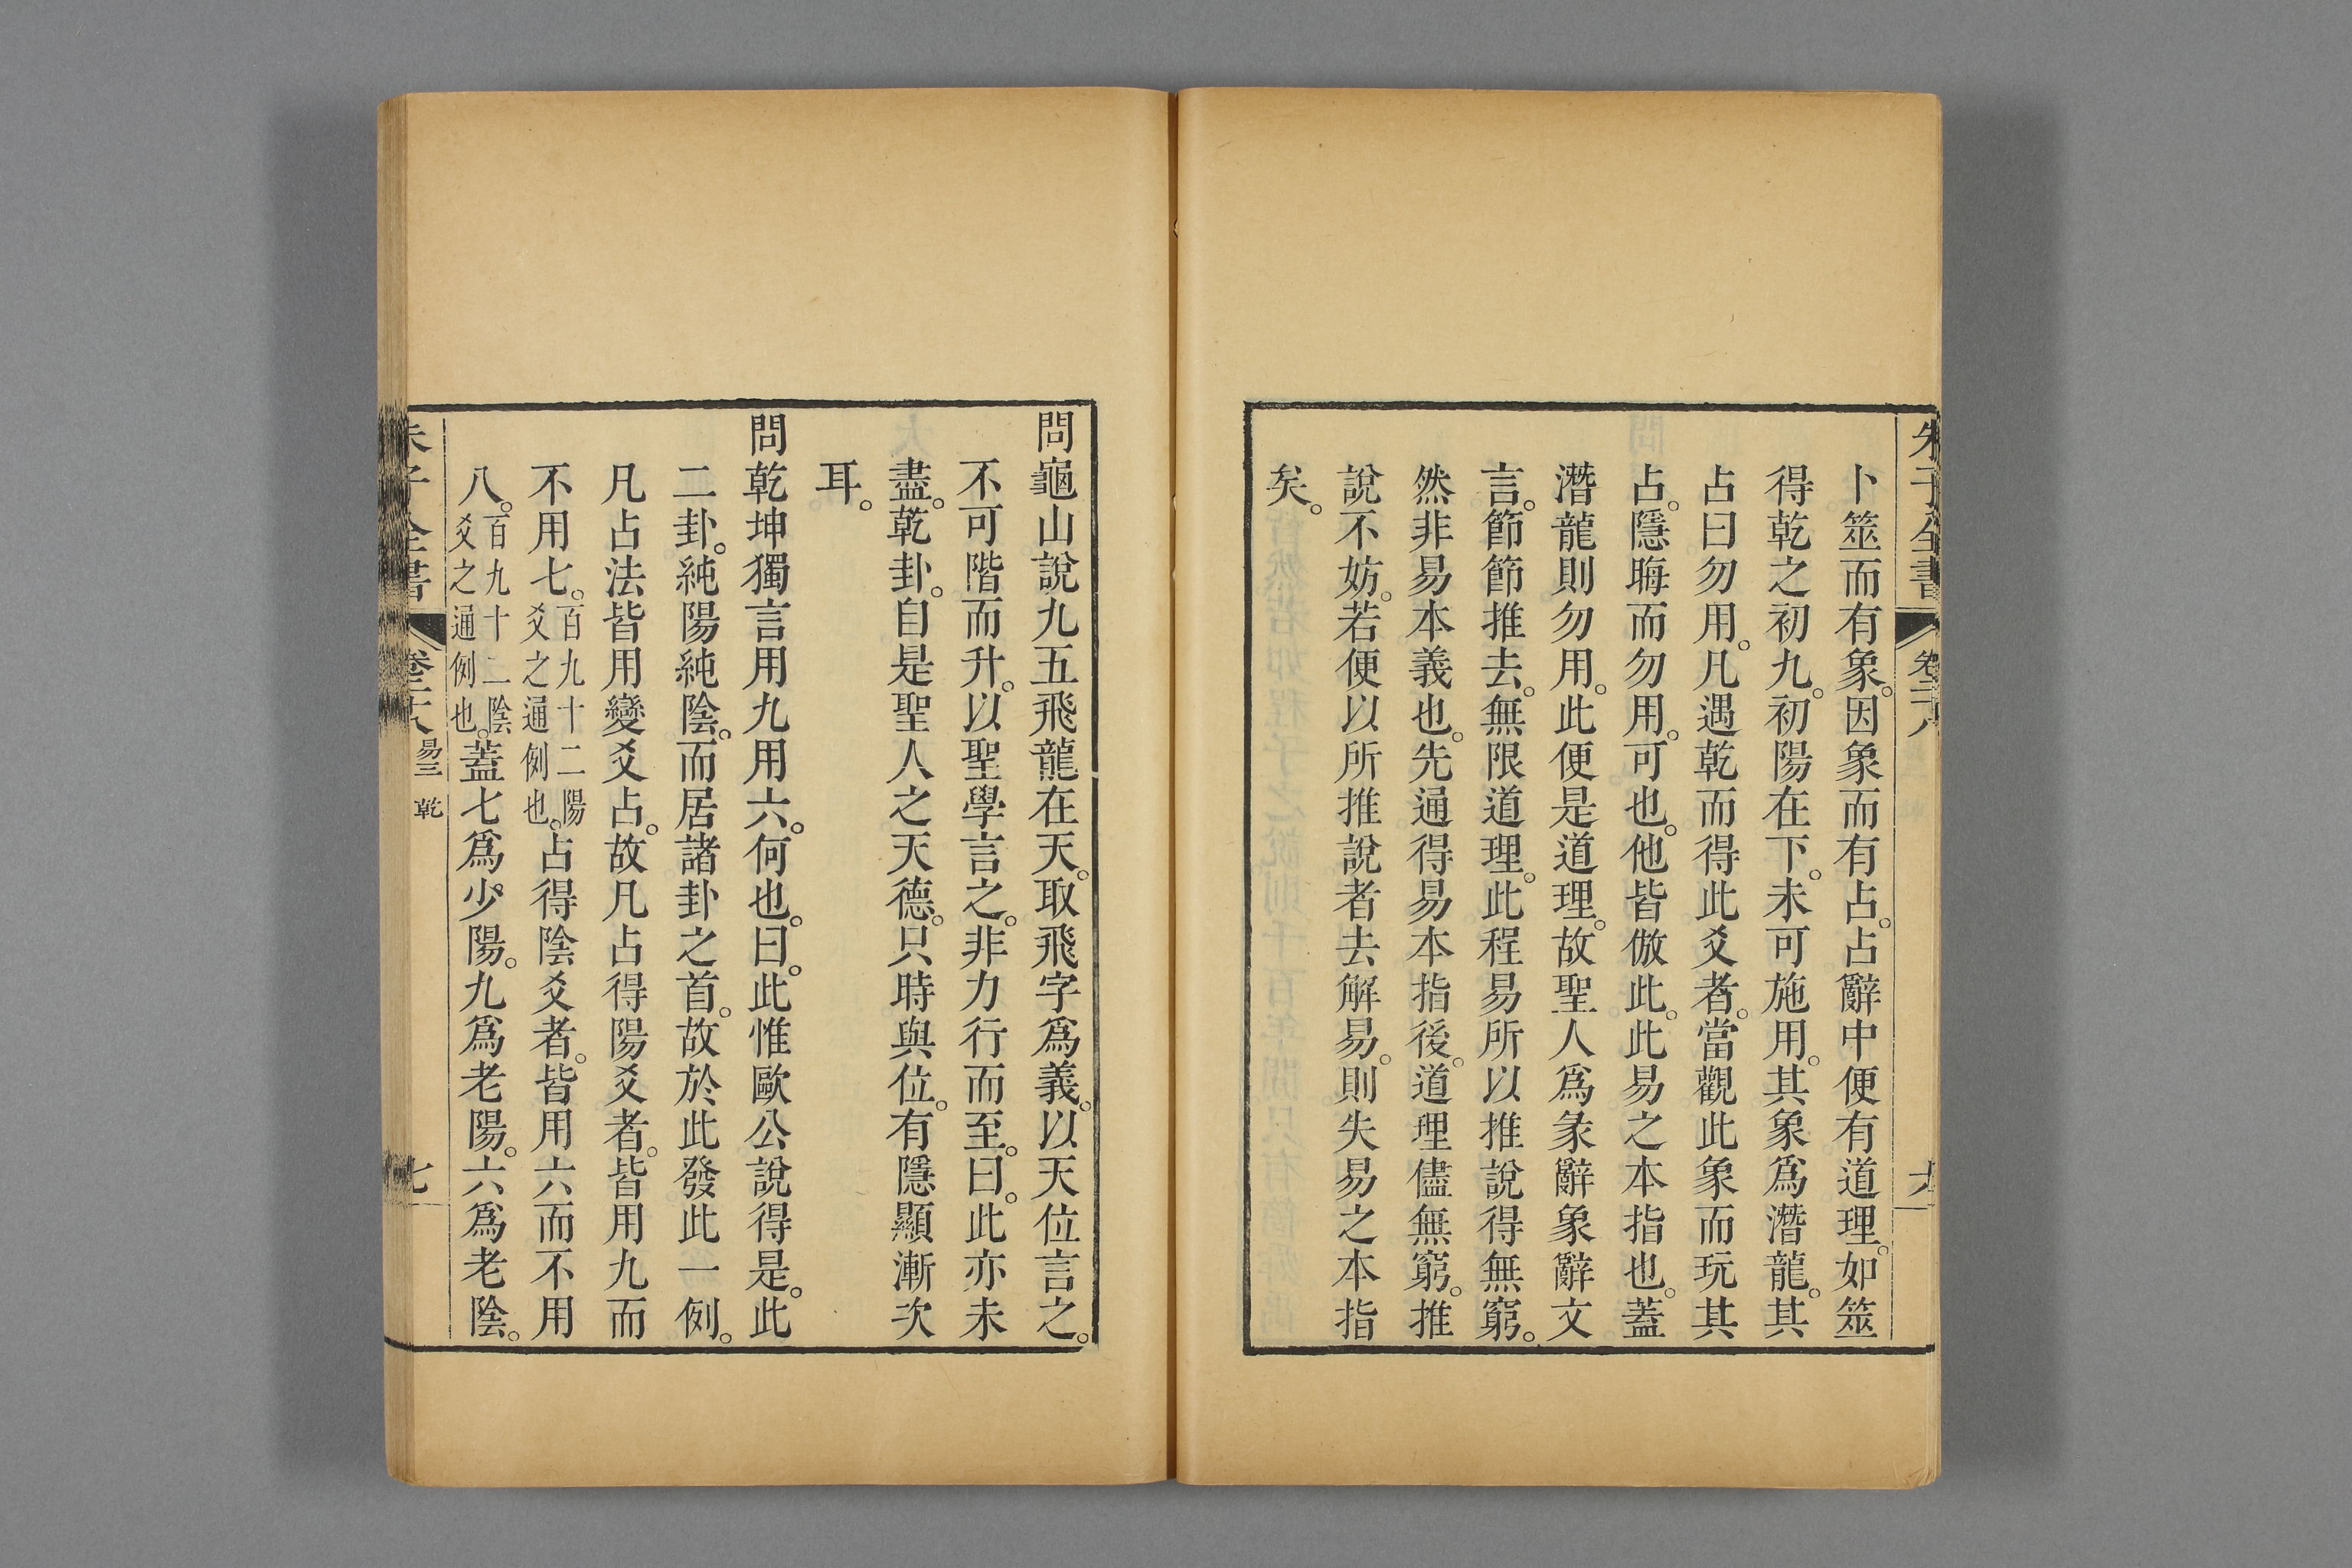 卜筮而有象。因象而有占。占辭中便有道理。如筮
得乾之初九。初陽在下。未可施用。其象爲潛龍。其
占曰勿用。凡遇乾而得此爻者。當觀此象而玩其
占。隱晦而勿用。可也。他皆倣此。此易之本指也。蓋
潛龍則勿用。此便是道理。故聖人爲彖辭象辭文
言。節節推去。無限道理。此程易所以推說得無窮。
然非易本義也。先通得易本指後。道理儘無窮。推
說不妨。若便以所推說者去解易。則失易之本指
矣。
問龜山說九五飛龍在天。取飛字爲義。以天位言之。
不可階而升。以聖學言之。非力行而至。曰。此亦未
盡。乾卦。自是聖人之天德。只時與位。有隱顯漸次
耳。
問乾坤獨言用九用六。何也。曰。此惟歐公說得是。此
二卦。純陽純陰。而居諸卦之首。故於此發此一例。
凡占法皆用變爻占。故凡占得陽爻者。皆用九而
不用七。百九十二陽爻之通例也。占得陰爻者。皆用六而不用
八。百九十二陰爻之通例也。蓋七爲少陽。九爲老陽。六爲老陰。
易三 乾